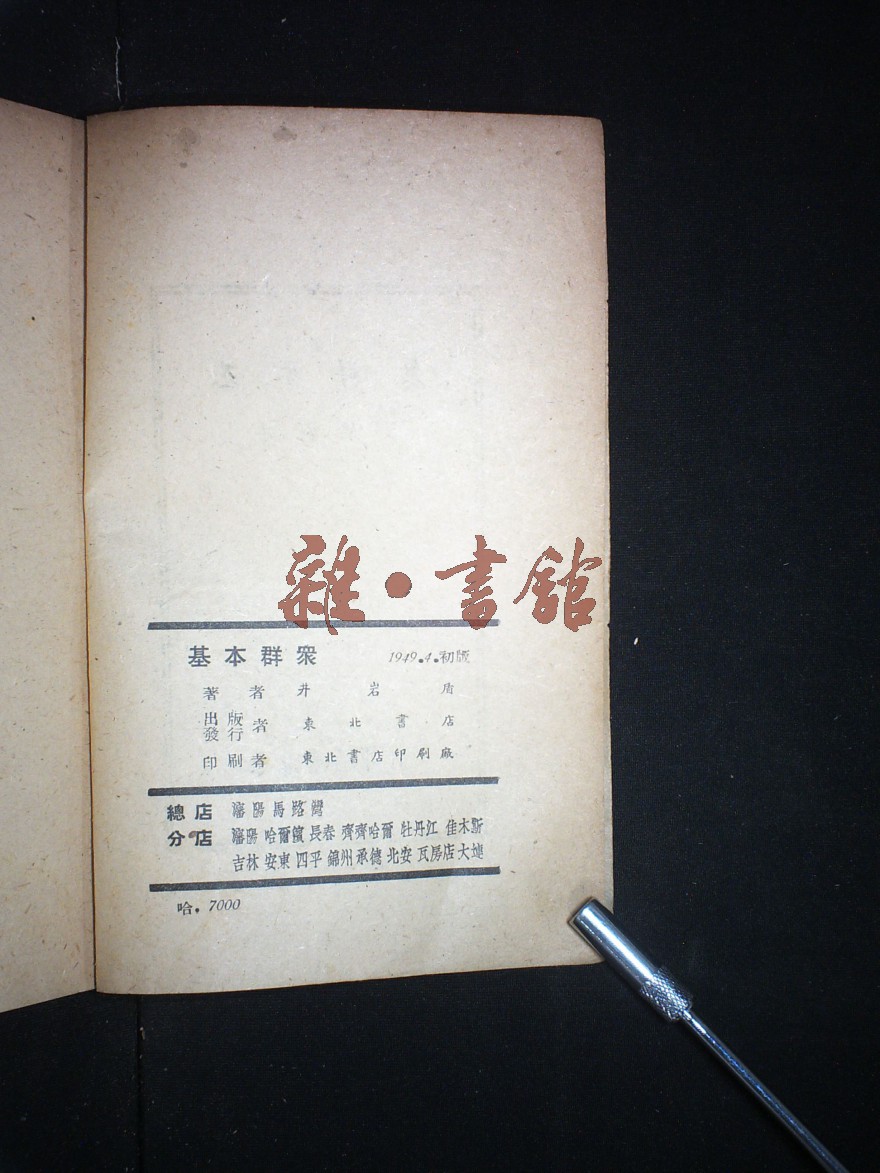 雜·書館
基本群衆 1949.4.初版
著者 井岩盾
出版發行者 東北書店
印刷者 東北書店印刷廠
總店 瀋陽馬路灣
分店 瀋陽 哈爾濱 長春 齊齊哈爾 牡丹江 佳木斯
吉林 安東 四平 錦州 承德 北安 瓦房店 大連
哈. 7000